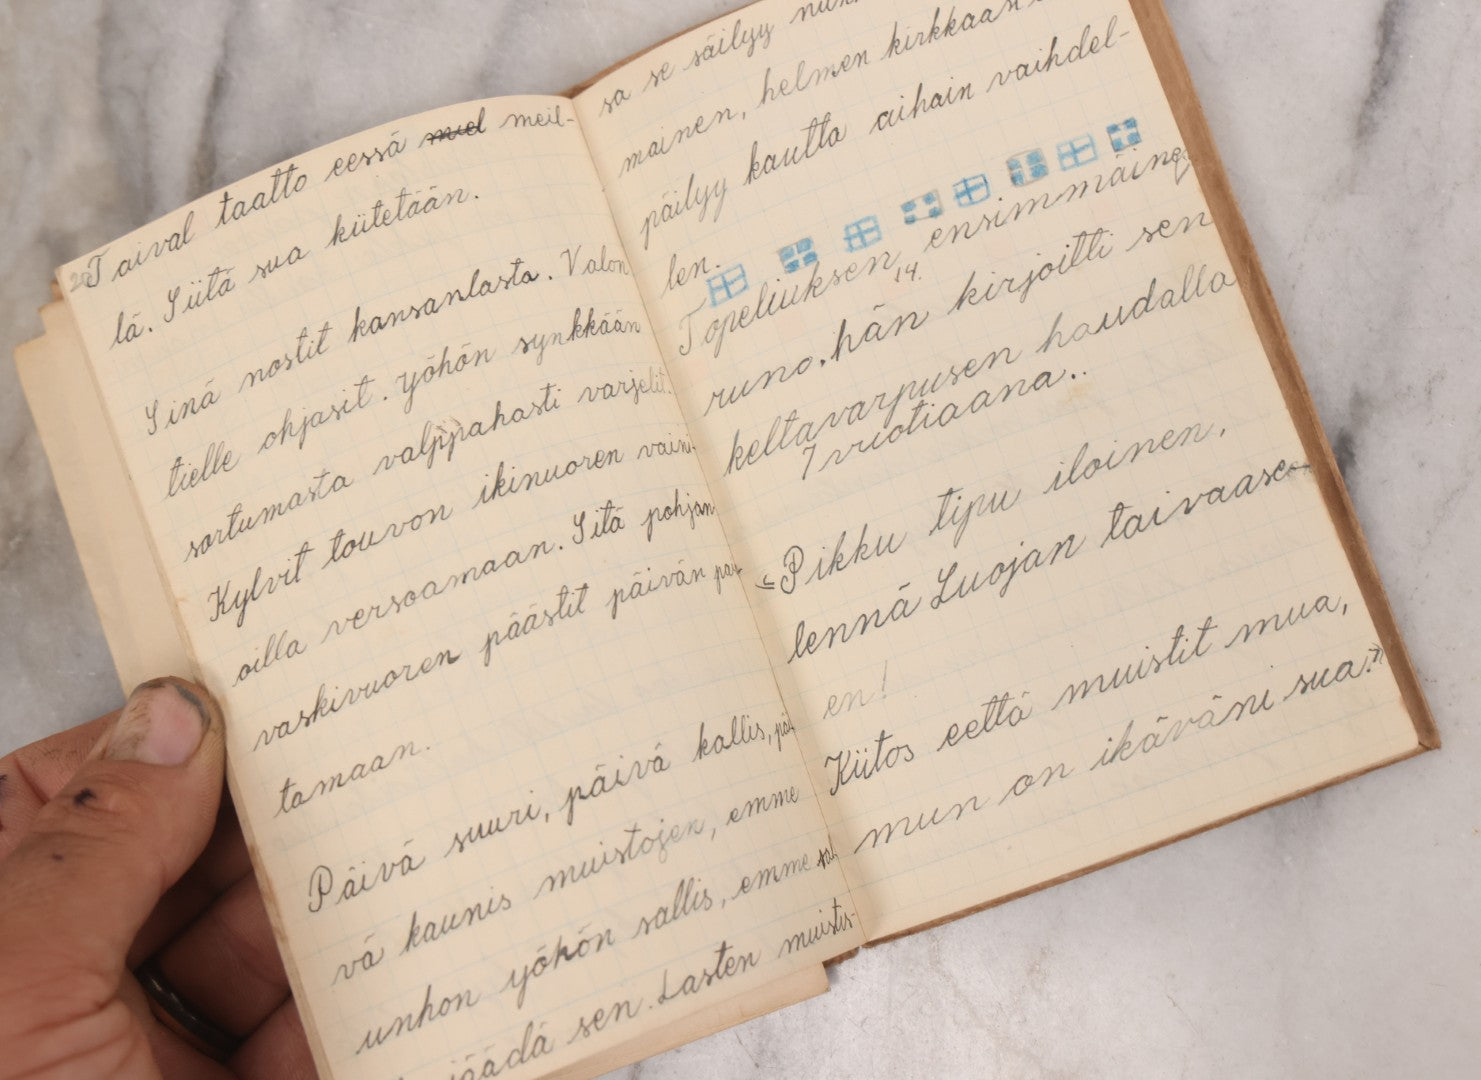 Taival taatto eessä miel meil-
lä. Siitä sua kiitetään.
Sinä nostit kansanlasta. Valon
tielle ohjasit. Yöhön synkkään
sortumasta valppahasti varjelit.
Kylvit touvon ikinuoren vaini-
oilla versoamaan. Sitä pohjan
vaskivuoren päästit päivän pai
tamaan.
Päivä suuri, päivä kallis, päi
vä kaunis muistojen, emme
unhon yöhön sallis, emme sal
jäädä sen. Lasten muistis-
sa se säilyy
mainen, helmen kirkkaan
päilyy kautta aihain vaihdel-
len.
Topeliuksen ensimmäine
14.
runo. hän kirjoitti sen
keltavarpusen haudalla
7 vuotiaana..
"Pikku tipu iloinen,
lennä Luojan taivaase
en!
Kiitos eettä muistit mua,
mun on ikäväni sua."